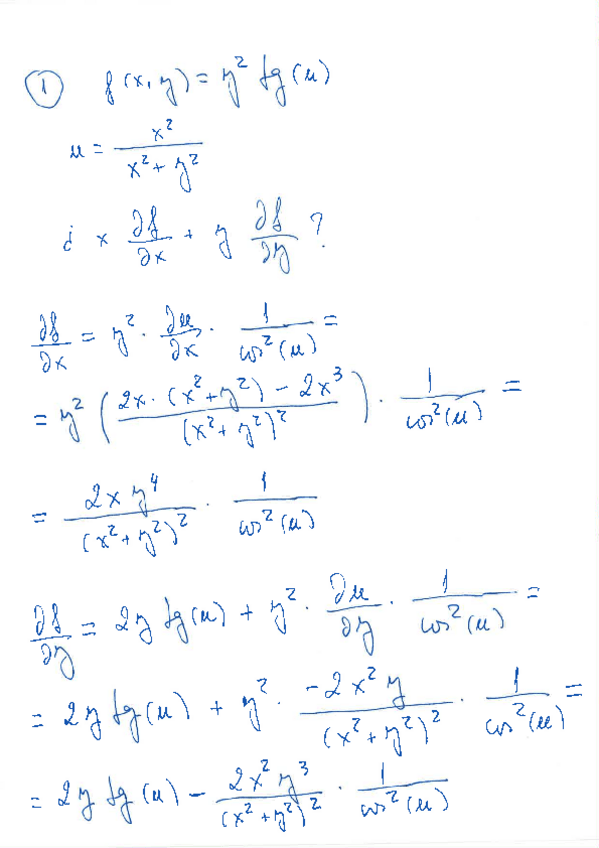 1 f(x,y) = y² tg(u)
u = x² / (x² + y²)
¿ x ∂f/∂x + y ∂f/∂y ?
∂f/∂x = y² · ∂u/∂x · 1/cos²(u) =
= y² ( (2x · (x² + y²) - 2x³) / (x² + y²)² ) · 1/cos²(u) =
= 2xy⁴ / (x² + y²)² · 1/cos²(u)
∂f/∂y = 2y tg(u) + y² · ∂u/∂y · 1/cos²(u) =
= 2y tg(u) + y² · -2x²y / (x² + y²)² · 1/cos²(u) =
= 2y tg(u) - 2x²y³ / (x² + y²)² · 1/cos²(u)